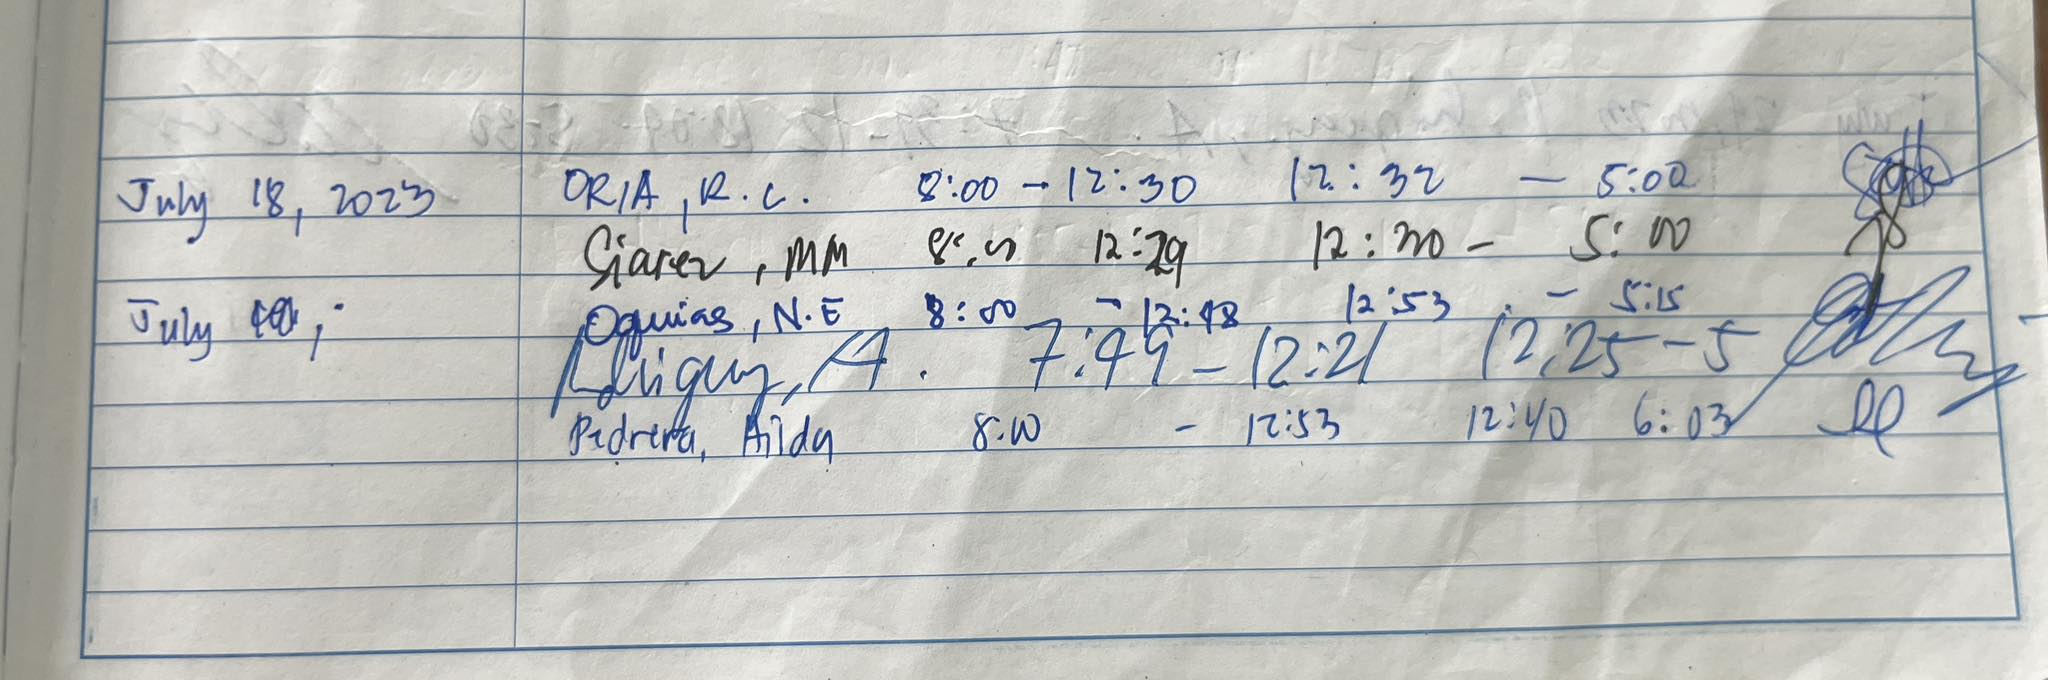 July 18, 2023 ORIA, R.C. 8:00 - 12:30 12:32 - 5:00
Giarez, MM 8:00 12:29 12:30 - 5:00
July Oquias, N.E 8:00 - 12:48 12:53 - 5:15
A. 7:49 - 12:21 12:25 - 5
Pedrera, Ailda 8:00 - 12:53 12:40 6:03